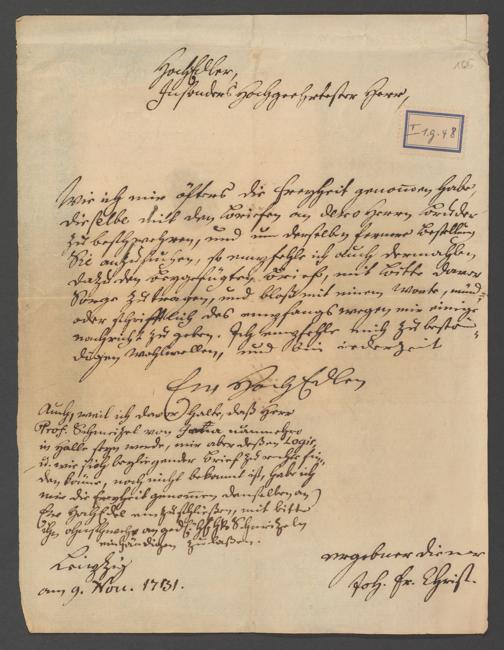 166
HochEdler,
Insonders Hochgeehrtester Herr,
I 1. g. 48
Wie ich mir öfters die Freyheit genommen habe,
dieselbe mit den Briefen an dero Herrn Bruder
zu beschwehren, und um derselben fernere Bestellung
Sie anzusuchen, so empfehle ich auch dermahlen
dazu den beygefügten Brief, mit bitte davor
Sorge zu tragen, und bloß mit einem Worte, münd-
oder schrifftlich des empfangs wegen mir einige
nachricht zu geben. Ich empfehle mich zu bestän-
digen wohlwollen, und bin iederzeit
Ew. HochEdlen
Auch, weil ich davor halte, daß Herr
Prof. Schmeitzel von Jena nunmehro
in Halle seyn werde, mir aber deßen Logis,
u. wie sich beyliegender Brief zu rechte fin-
den könne, noch nicht bekannt ist, habe ich
mir die Freyheit genommen denselben an
Ew. HochEdl. einzuschließen, mit bitte
ihn ohnschwehr an ged. H. Schmeitzeln
einhändigen zu laßen.
Leipzig
am 9. Nov. 1731.
ergebner diener
Joh. Fr. Christ.